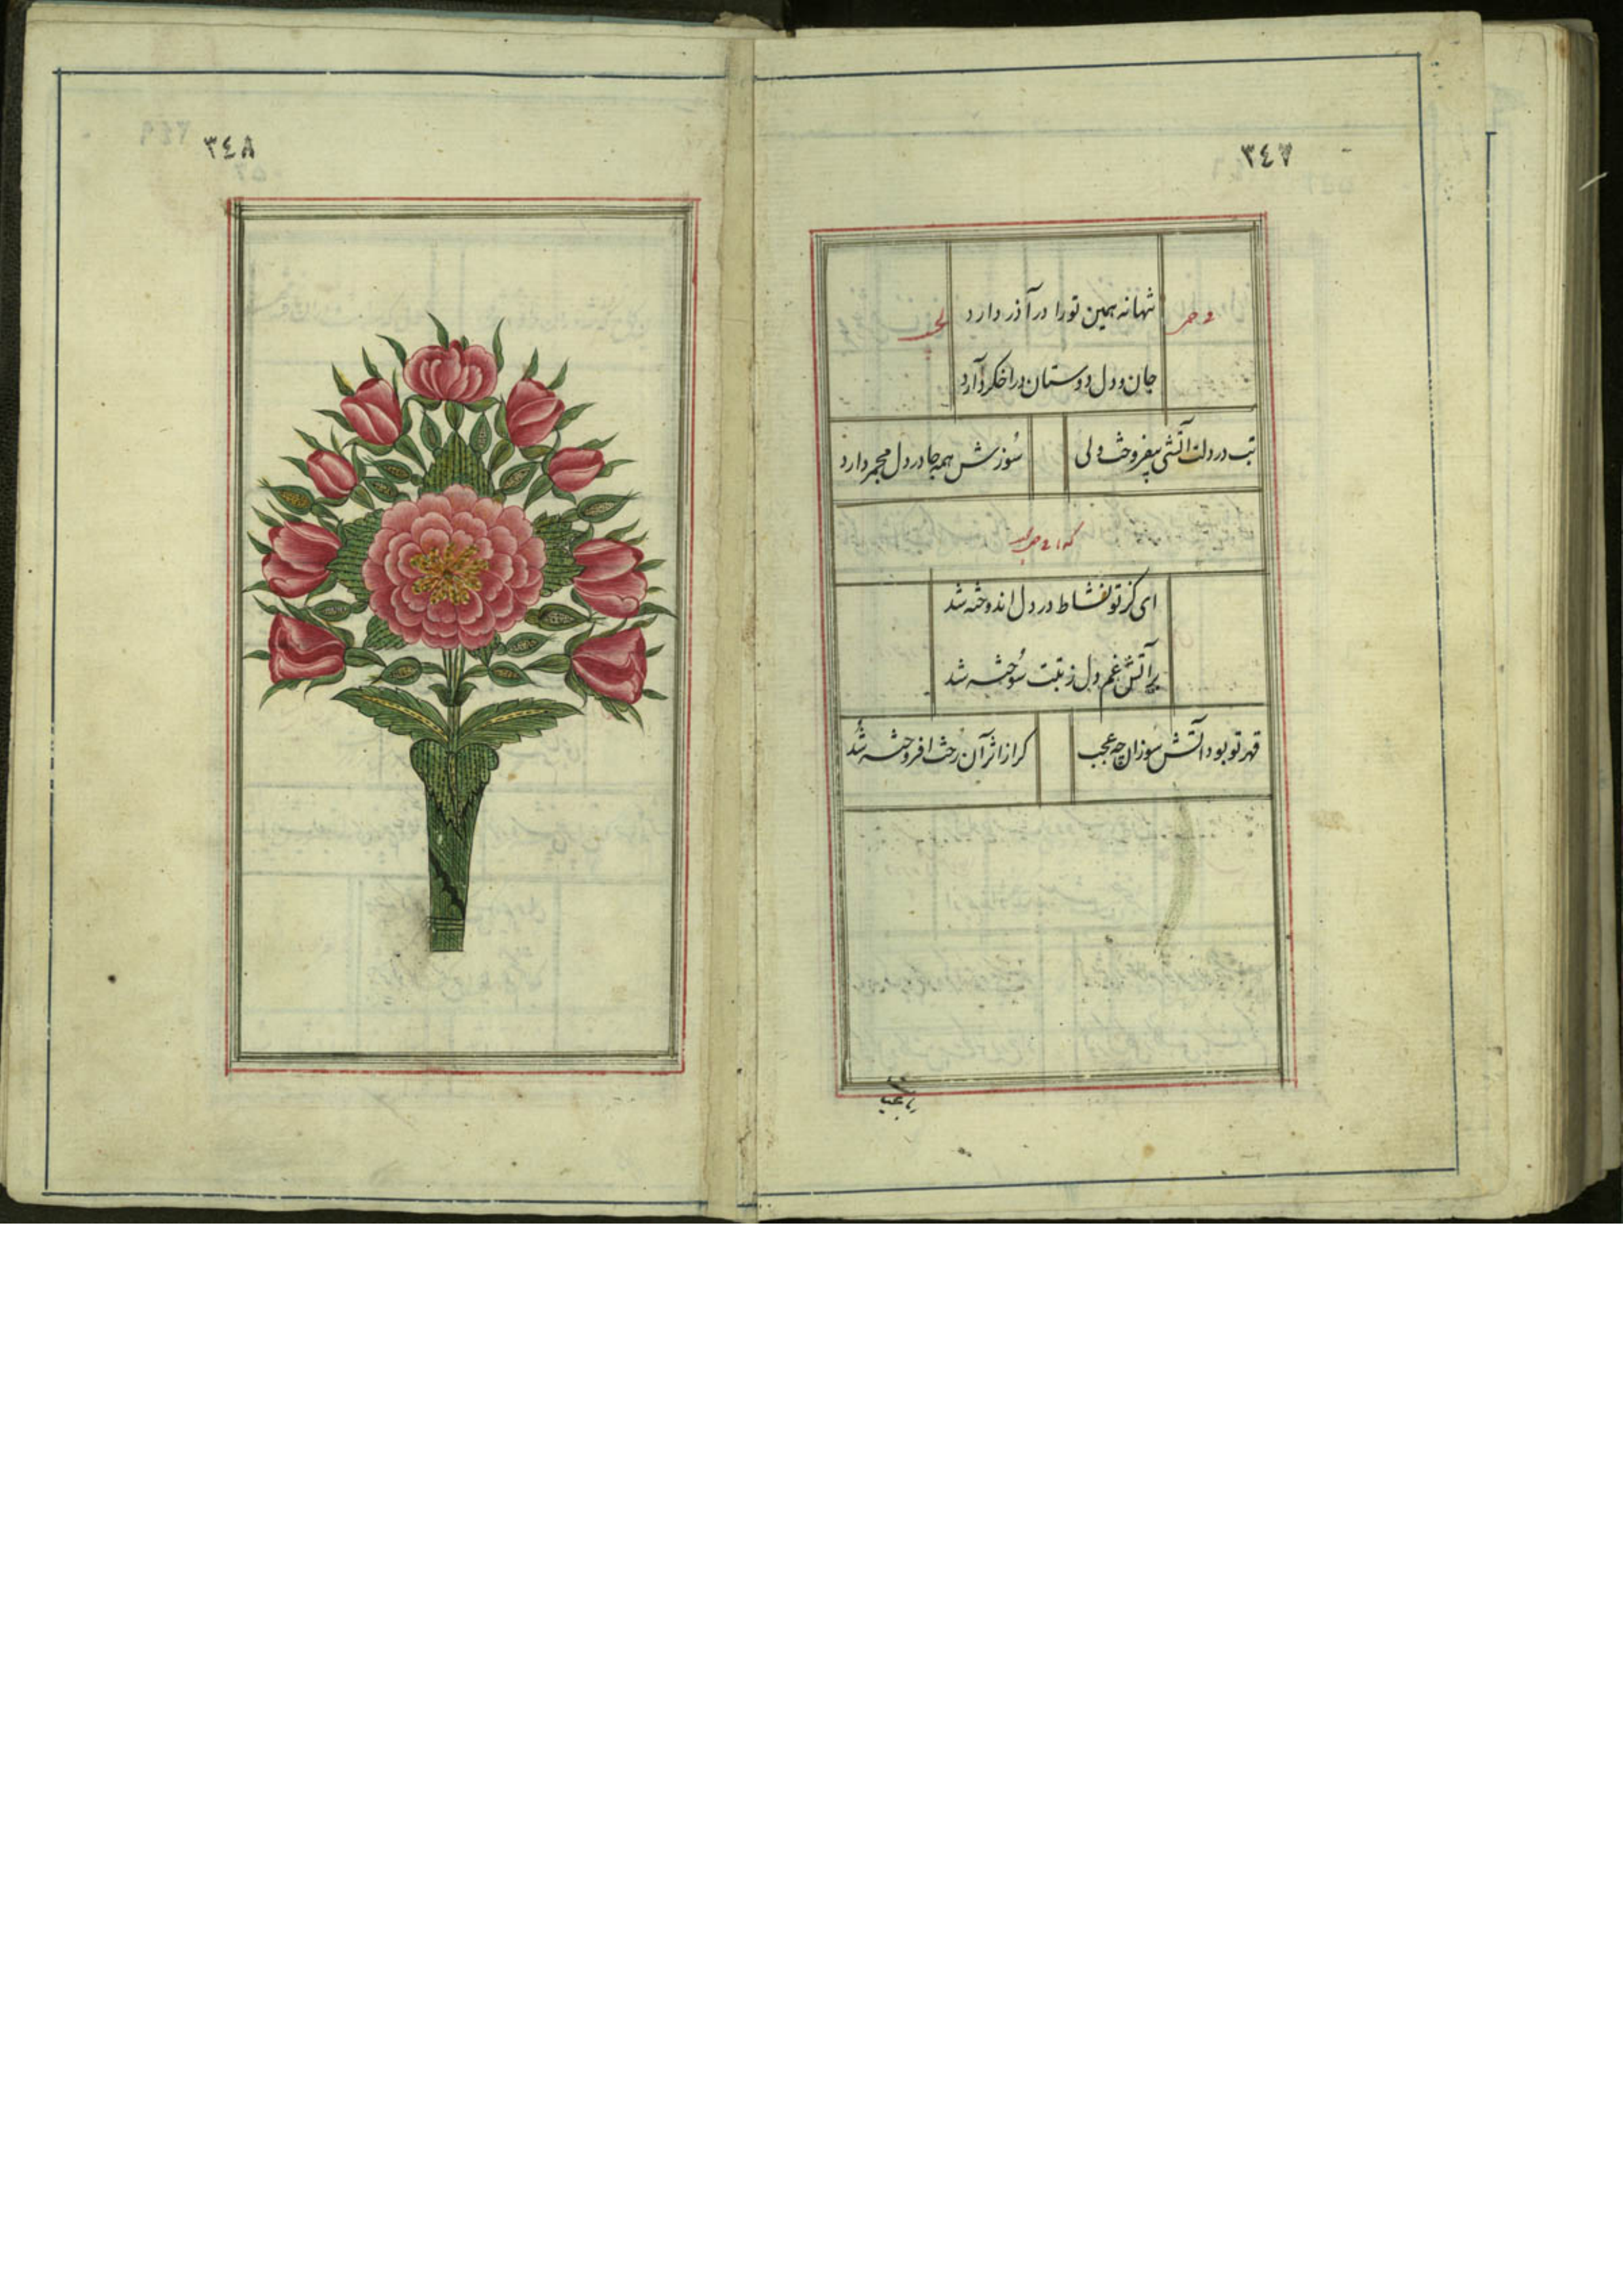 ٣٤٧
تنها نه همین تو را در آذر دارد
جان و دل دوستان در اخکر دارد
تب در دلت آتشی بیفروخت ولی
سوزش همه جا در دل مجمر دارد
ای کز تو نشاط در دل اندوخته شد
بر آتش غم دل ز تبت سوخته شد
قهر تو بود آتش سوزان چه عجب
کر از اثر آن رخت افروخته شد
٣٤٨